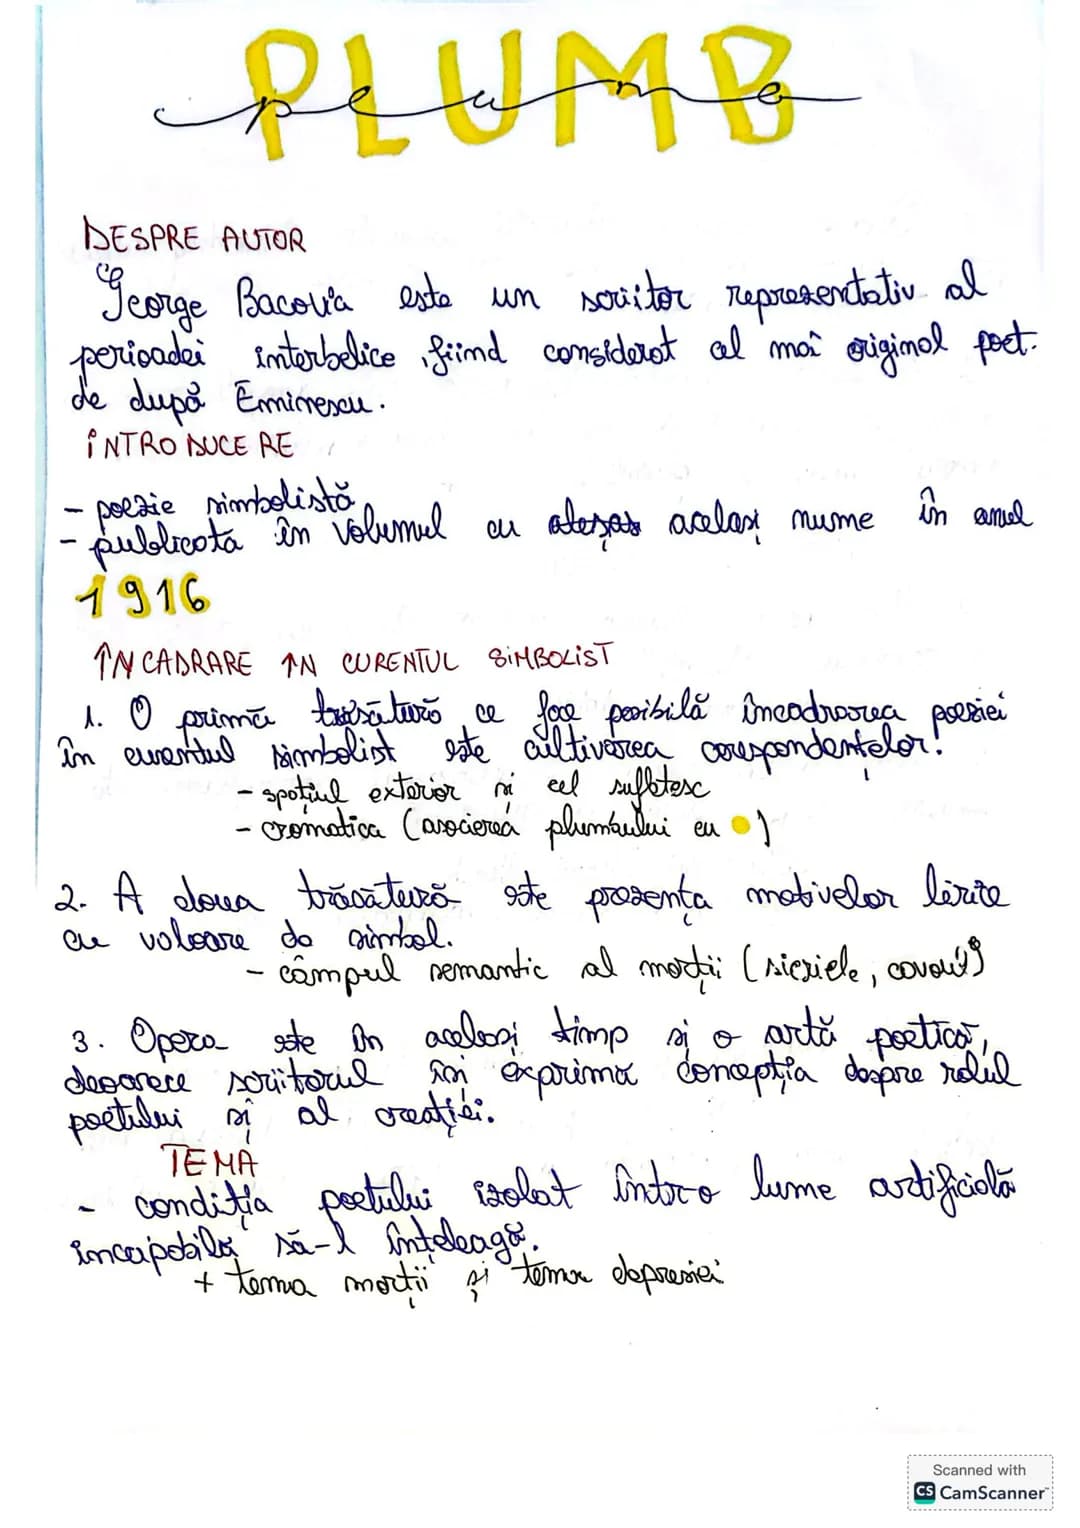 PLUMB
plumb
DESPRE AUTOR
George Bacovia este un scriitor reprezentativ al
perioadei interbelice, fiind considerat al mai original poet
de după Eminescu.
INTRODUCERE
- poezie simbolistă
- publicata în volumul cu același nume în anul
1916
ÎNCADRARE ÎN CURENTUL SIMBOLIST
1. O primă trăsătură ce face posibilă încadrarea poeziei
în curentul simbolist este cultivarea corespondențelor:
- spațiul exterior și cel sufletesc
- cromatica (asocierea plumbului cu )
2. A doua trăsătură este prezența motivelor lirice
cu valoare de simbol.
- câmpul semantic al morții (sicriele, cavoul)
3. Opera este în același timp și o artă poetică,
deoarece scriitorul își exprima concepția despre rolul
poetului și al creației.
TEMA
- condiția poetului izolat într-o lume artificială
incapabilă să-l înțeleagă.
+ tema morții și tema depresiei
Scanned with
CS CamScanner